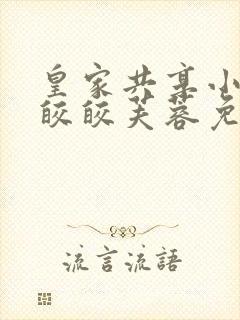 皇家共享小
皎皎芙蓉免
流言流語